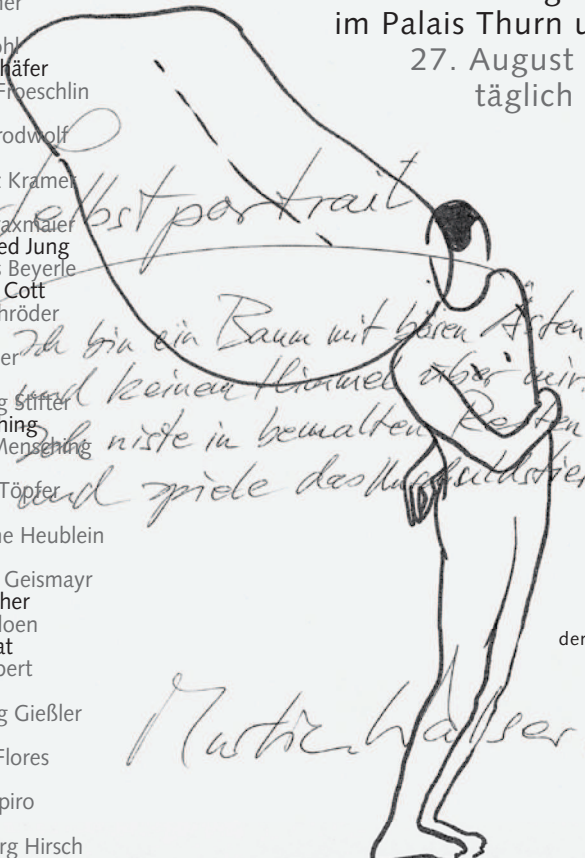 im Palais Thurn u
27. August
täglich
her
ohl
häfer
Froeschlin
rodwolf
t Kramer
axmaier
ed Jung
s Beyerle
Cott
hröder
er
g Stifter
hing
Mensching
Töpfer
ne Heublein
Geismayr
her
loen
at
bert
g Gießler
Flores
piro
rg Hirsch
Selbstportrait
Ich bin ein Baum mit bösen Ästen
und keinem Himmel über mir.
Ich niste in bemalten Resten
und spiele das Unschuldstier
Martin Walser
der